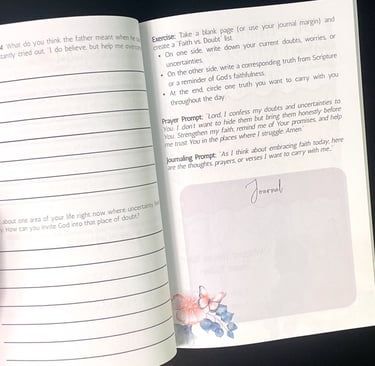 What do you think the father meant when he
cried out, "I do believe, but help me
about one area of your life right now where uncertainty
How can you invite God into that place of doubt?
Exercise: Take a blank page (or use your journal margin) and
create a "Faith vs. Doubt" list.
• On one side, write down your current doubts, worries, or
uncertainties.
• On the other side, write a corresponding truth from Scripture
or a reminder of God's faithfulness.
• At the end, circle one truth you want to carry with you
throughout the day.
Prayer Prompt: "Lord, I confess my doubts and uncertainties to
You. I don't want to hide them but bring them honestly before
You. Strengthen my faith, remind me of Your promises, and help
me trust You in the places where I struggle. Amen."
Journaling Prompt: "As I think about embracing faith today, here
are the thoughts, prayers, or verses I want to carry with me."
Journal